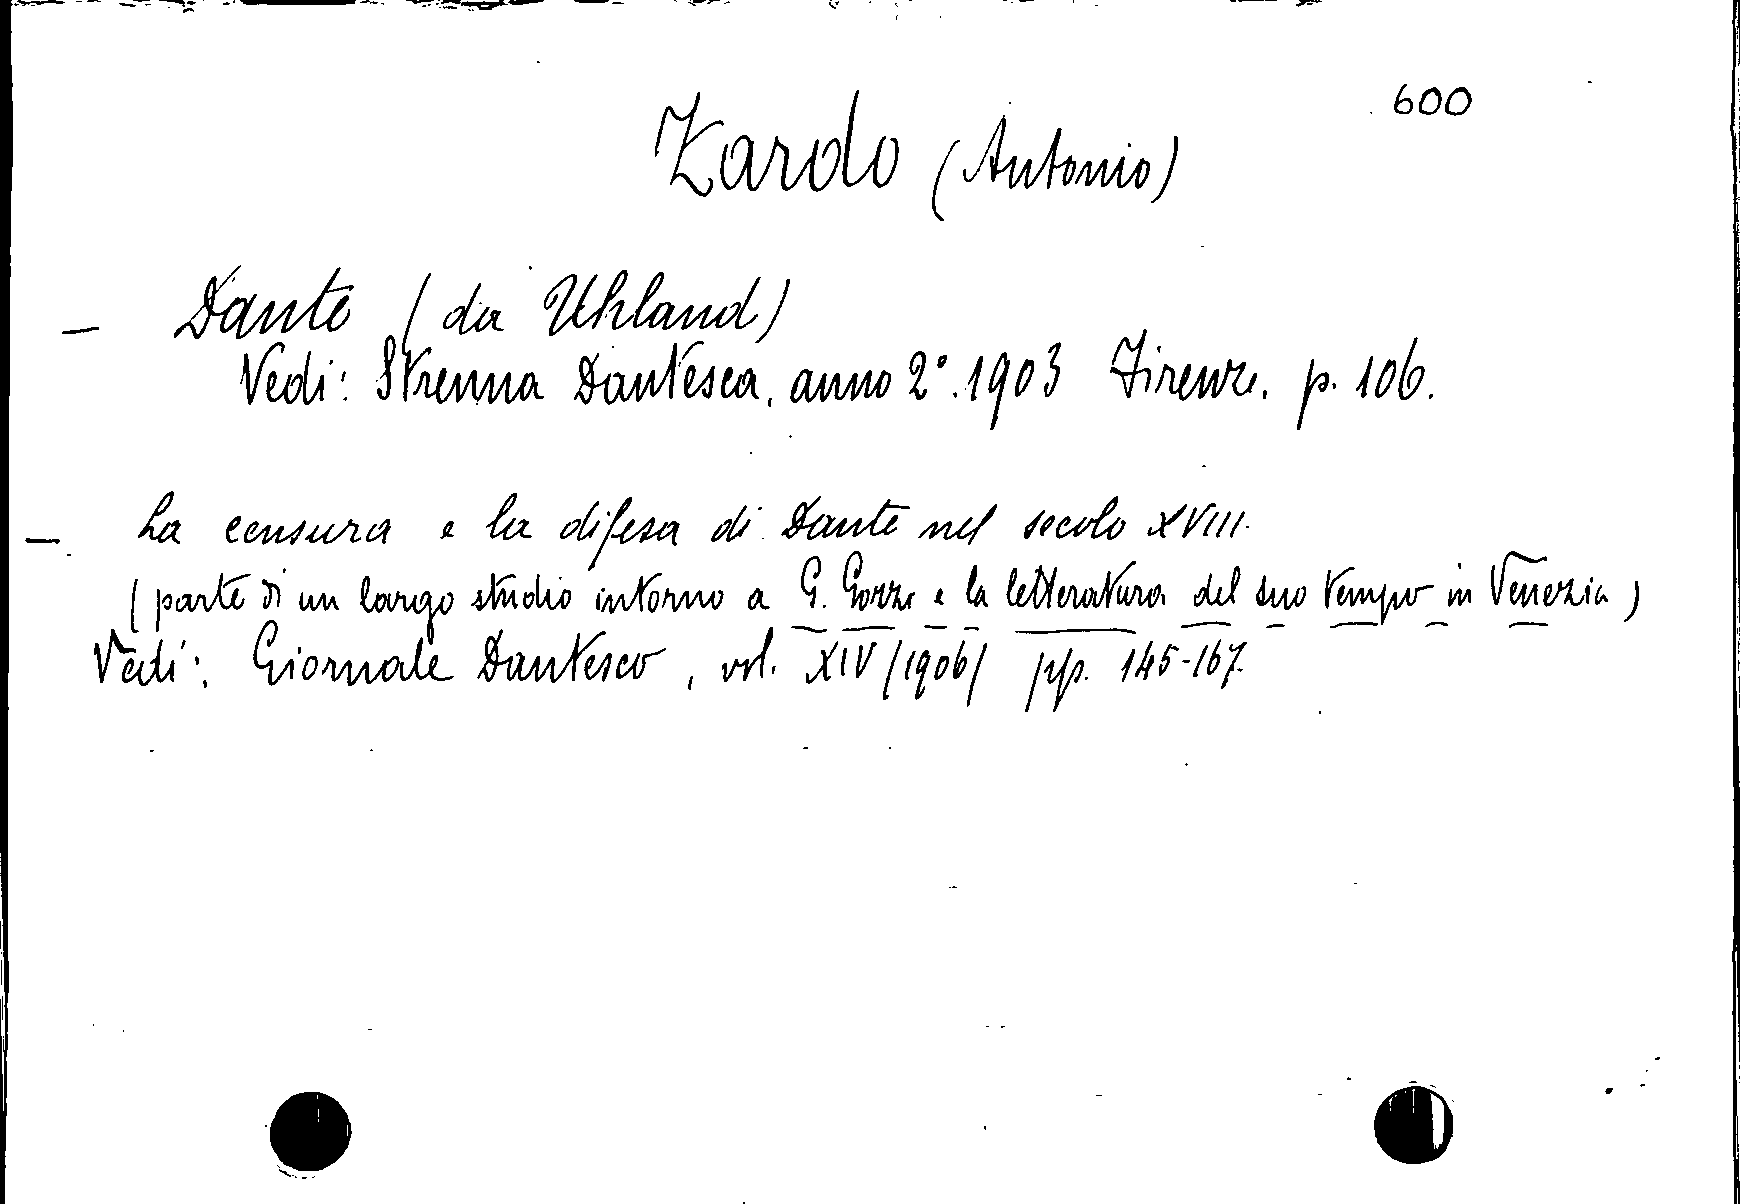 600
Zardo (Antonio)
— Dante (da Uhland)
Vedi: Strenna Dantesca, anno 2°. 1903 Firenze. p. 106.
— La censura e la difesa di Dante nel secolo XVIII.
(parte di un largo studio intorno a G. Gozzi e la letteratura del suo tempo in Venezia)
Vedi: Giornale Dantesco, vol. XIV (1906) pp. 145-167.